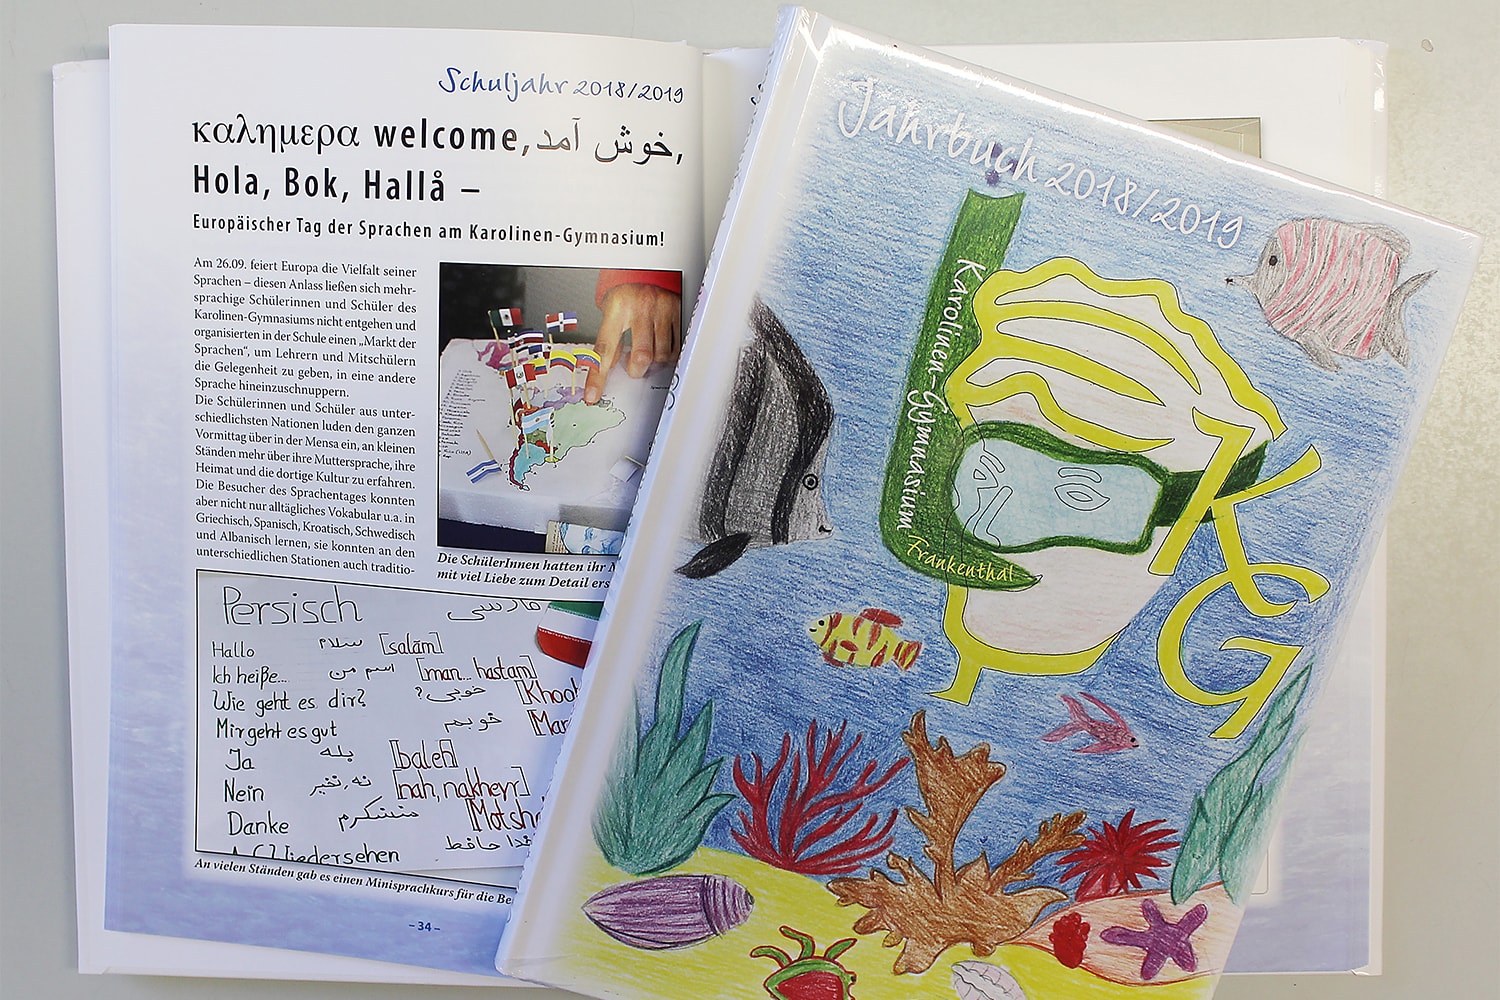 Schuljahr 2018/2019
καλημερα welcome, خوش آمد,
Hola, Bok, Hallå –
Europäischer Tag der Sprachen am Karolinen-Gymnasium!
Am 26.09. feiert Europa die Vielfalt seiner
Sprachen – diesen Anlass ließen sich mehr-
sprachige Schülerinnen und Schüler des
Karolinen-Gymnasiums nicht entgehen und
organisierten in der Schule einen „Markt der
Sprachen“, um Lehrern und Mitschülern
die Gelegenheit zu geben, in eine andere
Sprache hineinzuschnuppern.
Die Schülerinnen und Schüler aus unter-
schiedlichsten Nationen luden den ganzen
Vormittag über in der Mensa ein, an kleinen
Ständen mehr über ihre Muttersprache, ihre
Heimat und die dortige Kultur zu erfahren.
Die Besucher des Sprachentages konnten
aber nicht nur alltägliches Vokabular u.a. in
Griechisch, Spanisch, Kroatisch, Schwedisch
und Albanisch lernen, sie konnten an den
unterschiedlichen Stationen auch traditio-
Die SchülerInnen hatten ihr
mit viel Liebe zum Detail ers
Persisch فارسی
Hallo سلام [salām]
Ich heiße... اسم من [man... hastam]
Wie geht es dir? خوبی؟ [Khoob
Mir geht es gut خوبم [Man
Ja بله [baleh]
Nein نه، نخیر [nah, nakheyr]
Danke متشکرم [Motsha
Wiedersehen حافظ
An vielen Ständen gab es einen Minisprachkurs für die Be
– 34 –
Jahrbuch 2018/2019
Karolinen-Gymnasium
Frankenthal
KG